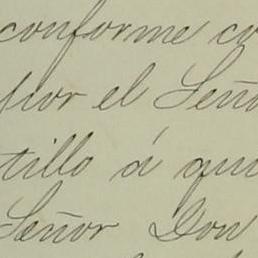 conforme co
por el Seño
tillo á qui
Señor Don